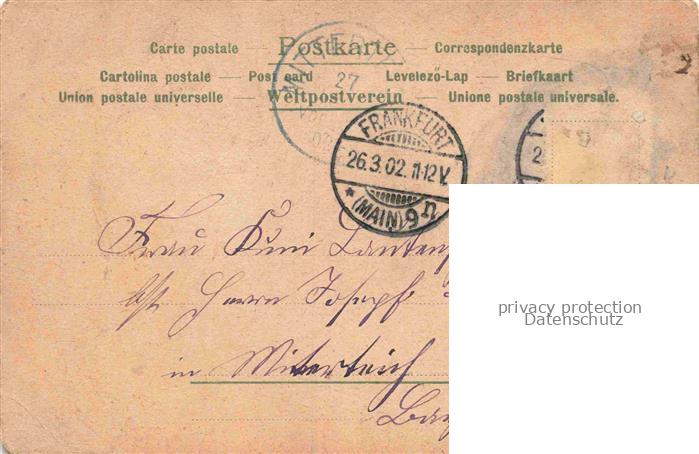 Carte postale — Postkarte — Correspondenzkarte
Cartolina postale — Post card Levelező-Lap — Briefkaart
Union postale universelle — Weltpostverein — Unione postale universale.
MITTERT
27
FRANKFURT
26.3.02. 11-12 V.
* (MAIN) 9 n
2
Frau Kuni
Herrn Josef
in Miterteich
privacy protection
Datenschutz